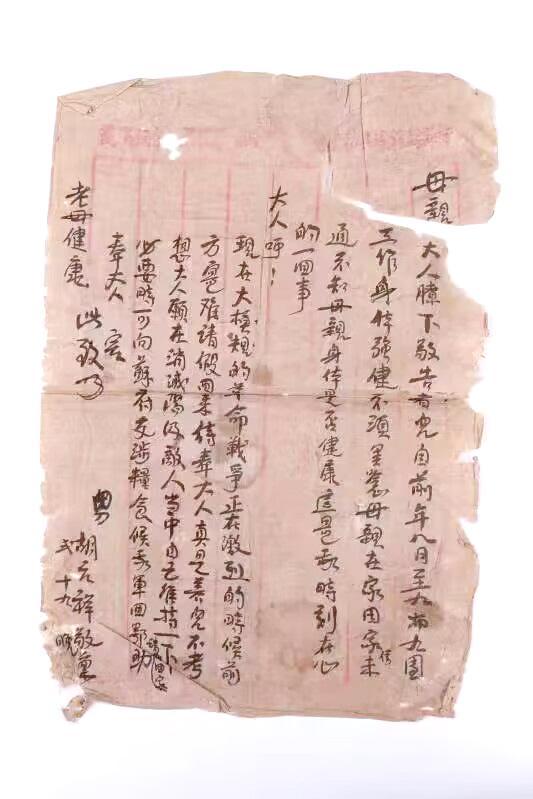 母親
大人膝下敬告者兒自前年八月至九師九團
工作身体強健不須罣慮母親在家因家信未
通不知母親身体是否健康這是我時刻在心
的一回事
大人呼！
現在大模規的革命戰爭正在激烈的時候前
方寔难請假回来侍奉大人真是養兒不孝
想大人願在消滅敌人当中自己維持一下
必要時可向蘇府交涉糧食候我軍回鄂助
回家
奉大人
老母健康 此致
男 胡 祥敬稟
弍 十九 晚